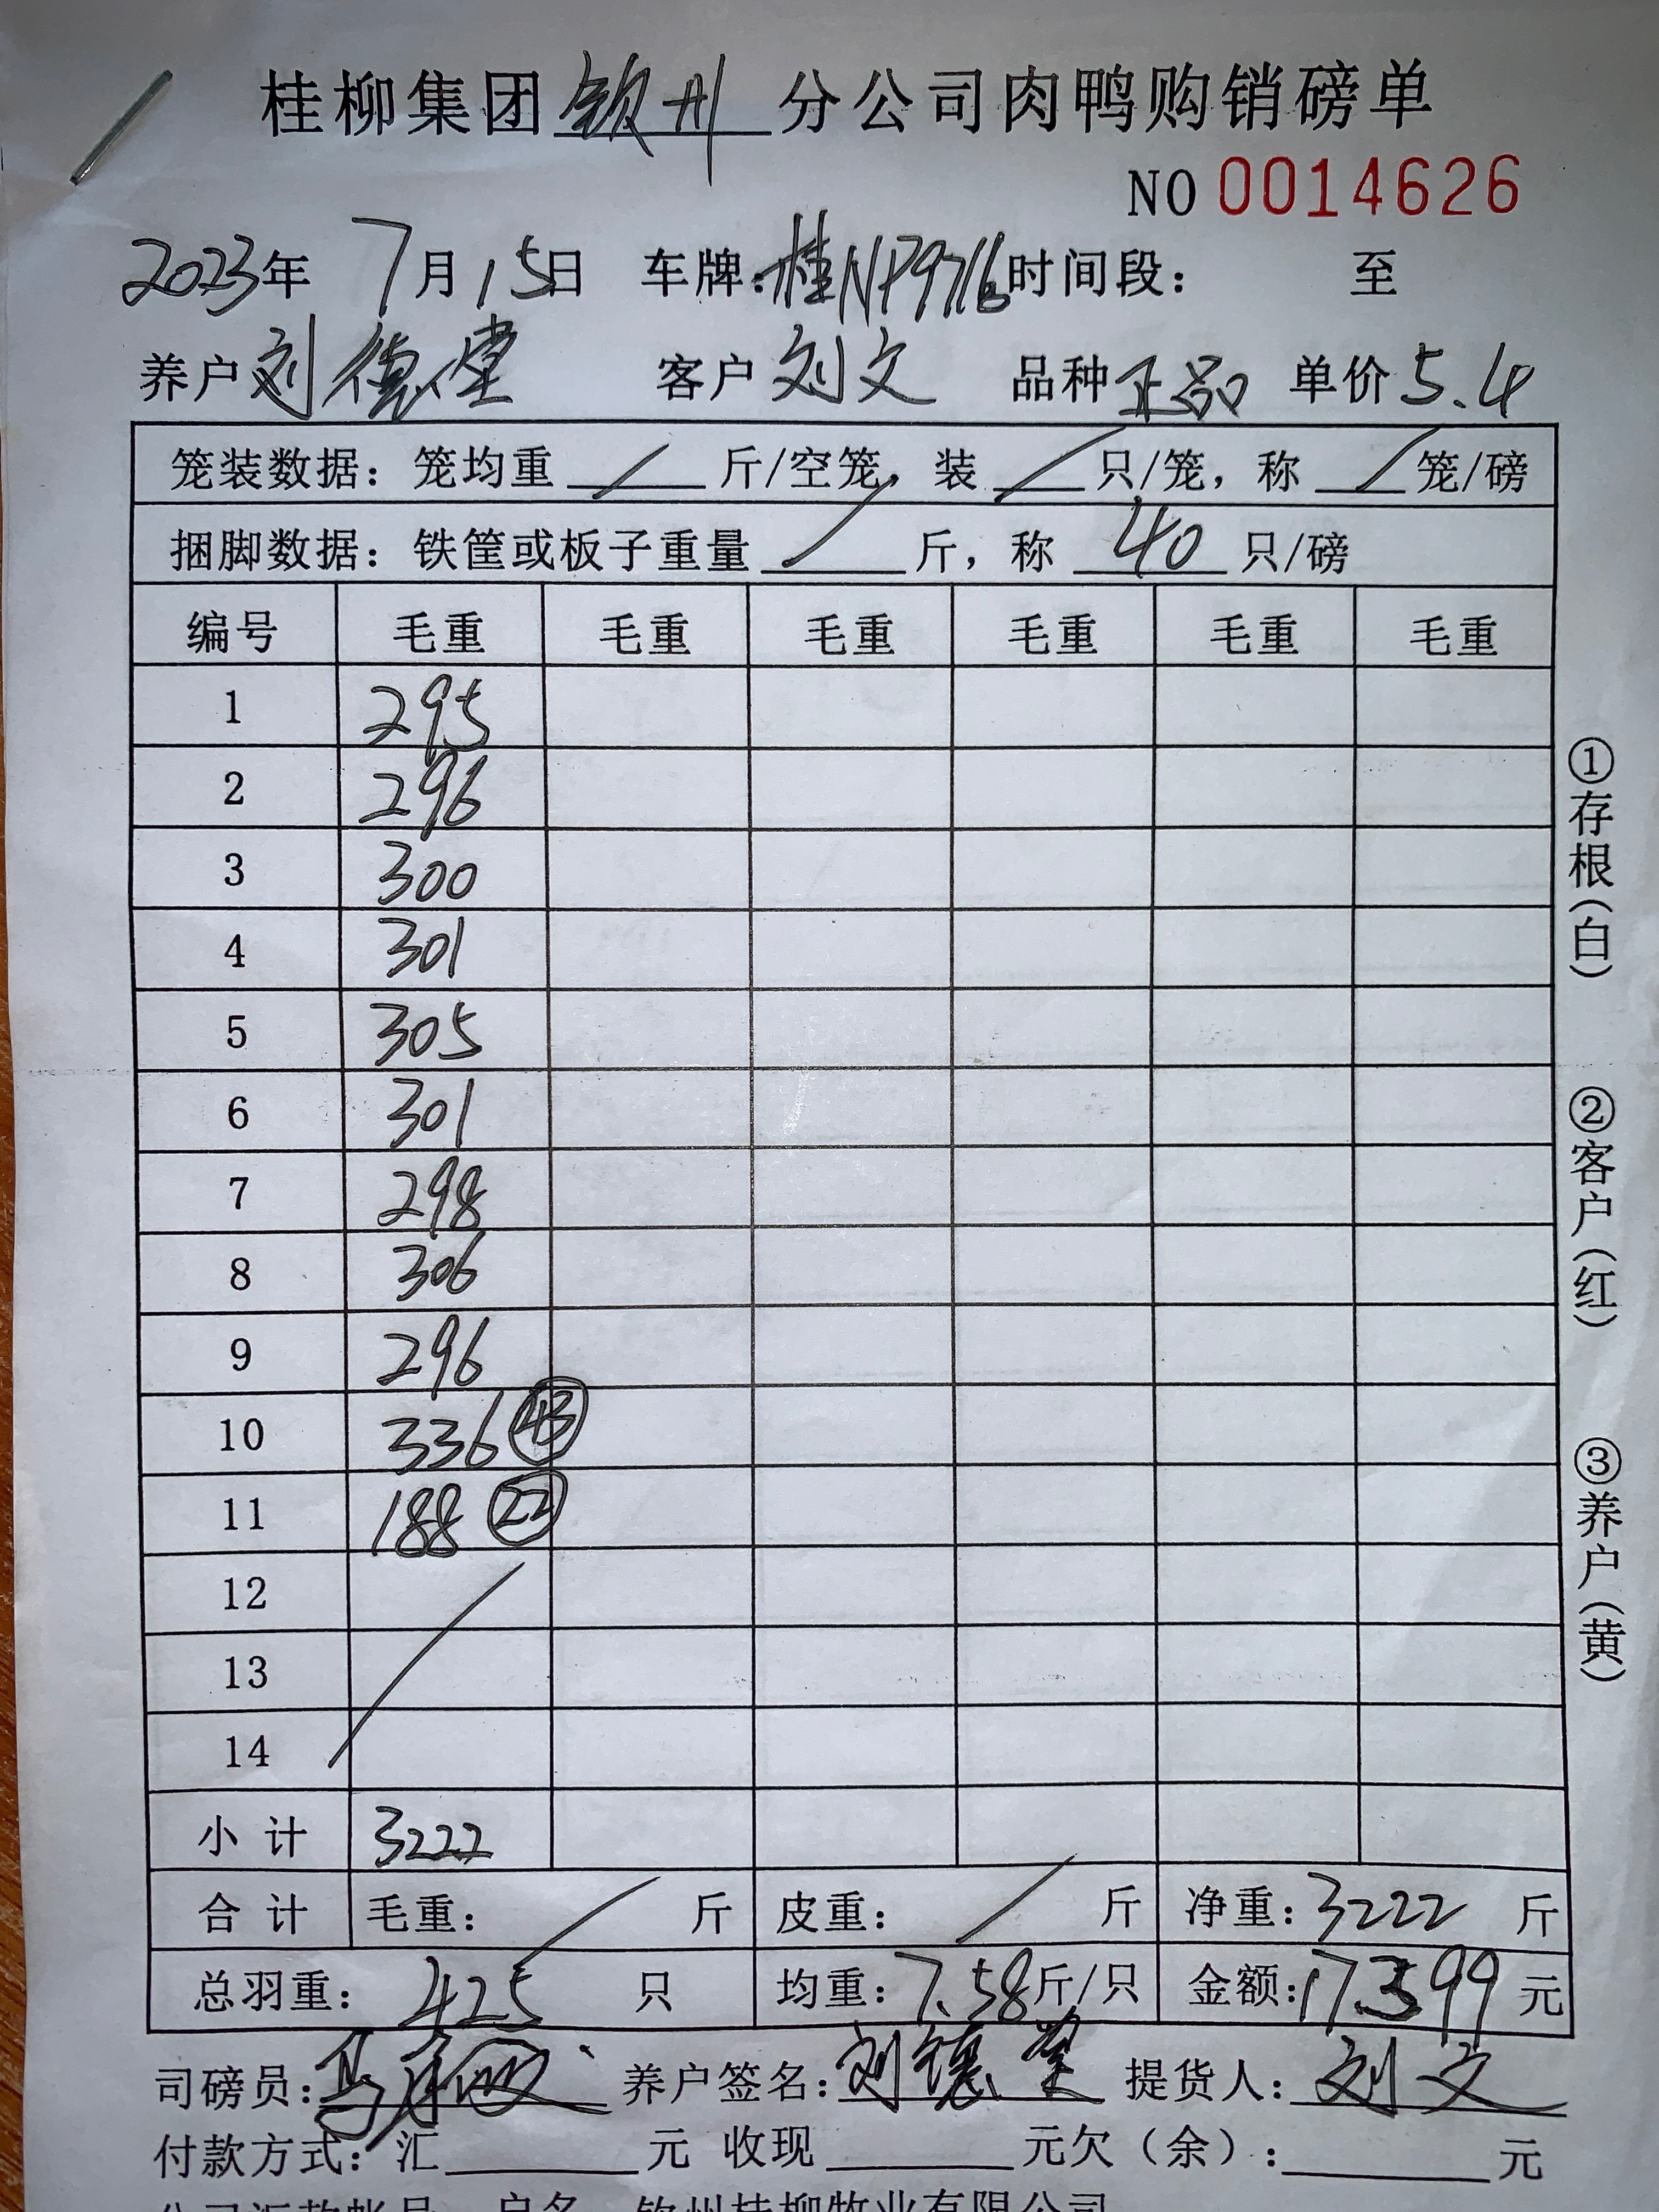 桂柳集团钦州分公司肉鸭购销磅单
NO 0014626
2023年 7月15日 车牌:桂NP9716 时间段: 至
养户刘德堂 客户刘文 品种正品 单价5.4
笼装数据:笼均重 / 斤/空笼,装 / 只/笼,称 / 笼/磅
捆脚数据:铁筐或板子重量 / 斤,称 40 只/磅
编号 毛重 毛重 毛重 毛重 毛重 毛重
1 295
2 296
3 300
4 301
5 305
6 301
7 298
8 306
9 296
10 336 43
11 188 22
12
13
14
小计 3222
合计 毛重: / 斤 皮重: / 斤 净重:3222 斤
总羽重: 425 只 均重:7.58斤/只 金额:17399元
司磅员: 养户签名:刘德堂 提货人:刘文
付款方式:汇 元 收现 元欠(余): 元
公司汇款帐号 户名 钦州桂柳牧业有限公司
①存根(白)
②客户(红)
③养户(黄)